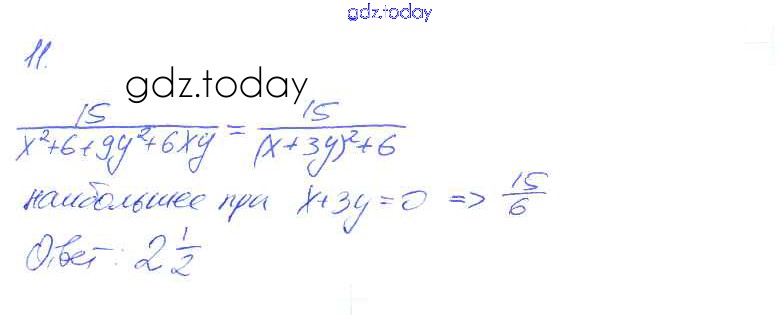 gdz.today
11.
gdz.today
15/(x²+6+9y²+6xy) = 15/((x+3y)²+6)
наибольшее при x+3y=0 => 15/6
Ответ: 2 1/2